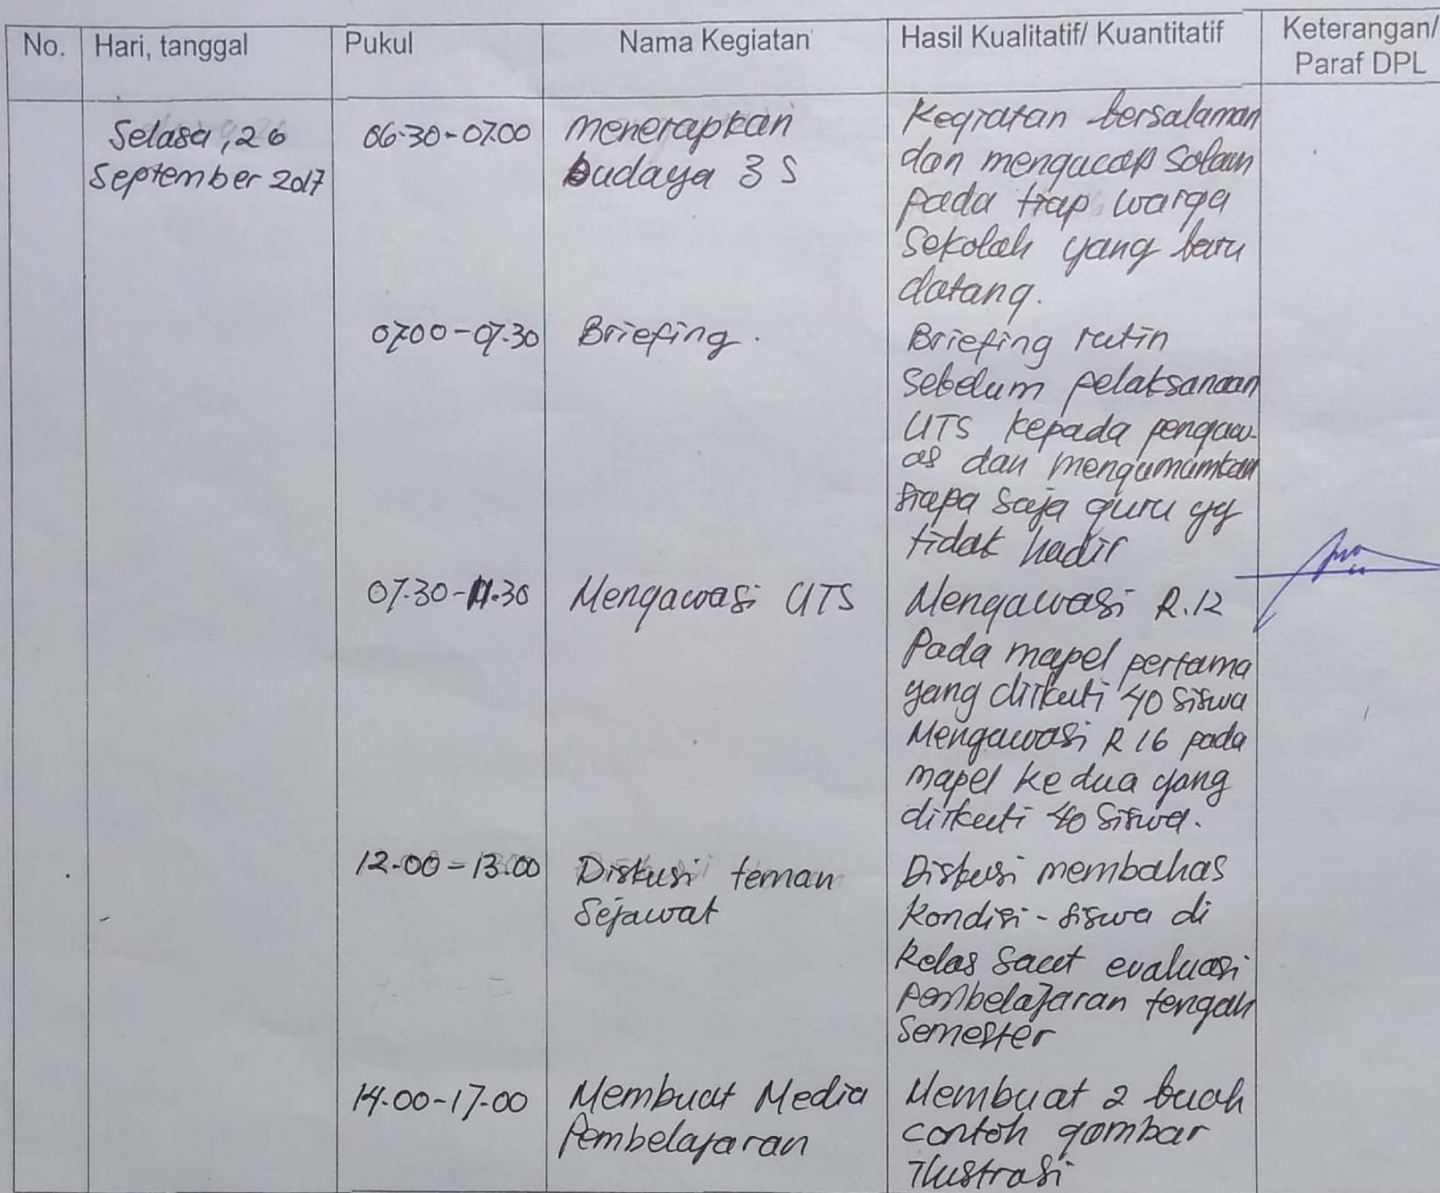 No. Hari, tanggal Pukul Nama Kegiatan Hasil Kualitatif/ Kuantitatif Keterangan/
Paraf DPL
Selasa, 26 06.30-07.00 Menerapkan Kegiatan bersalaman
September 2017 budaya 3 S dan mengucap Salam
pada tiap warga
Sekolah yang baru
datang.
07.00-07.30 Briefing. Briefing rutin
Sebelum pelaksanaan
UTS kepada pengaw-
as dan mengumumkan
siapa saja guru yg
tidak hadir
07.30-11.30 Mengawasi UTS Mengawasi R.12
Pada mapel pertama
yang diikuti 40 Siswa
Mengawasi R 16 pada
mapel kedua yang
diikuti 40 Siswa.
12.00-13.00 Diskusi teman Diskusi membahas
Sejawat Kondisi-siswa di
Kelas Saat evaluasi
Pembelajaran tengah
Semester
14.00-17.00 Membuat Media Membuat 2 buah
Pembelajaran contoh gambar
Ilustrasi